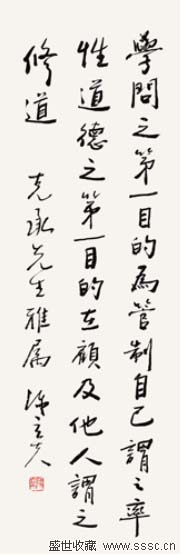 學問之第一目的為管制自己謂之率
性道德之第一目的在顧及他人謂之
修道
克承先生雅屬 陳立夫
盛世收藏
www.sssc.cn